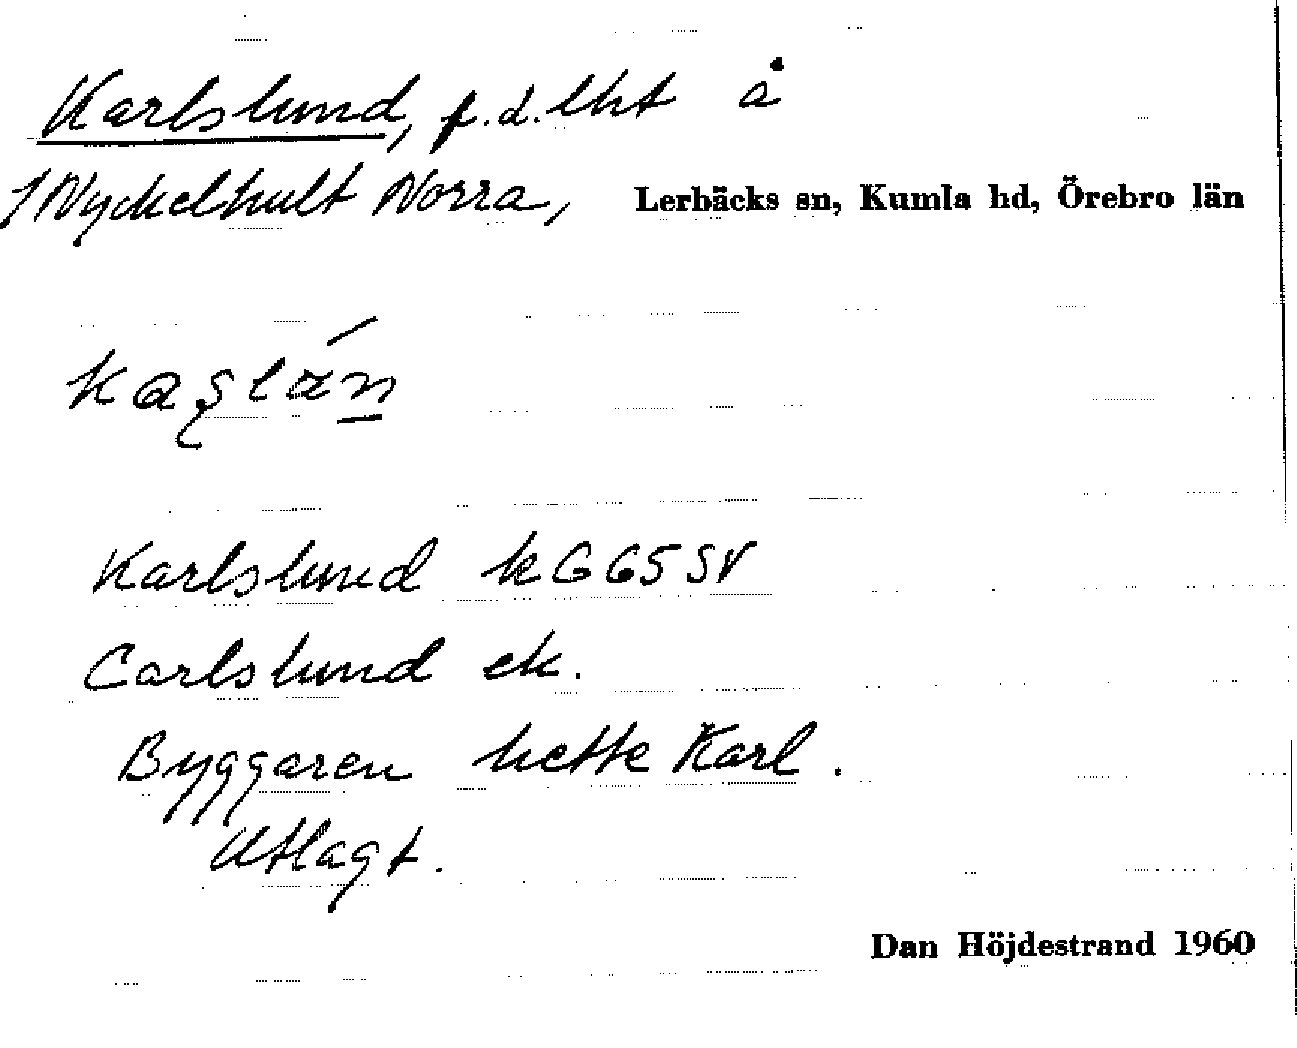 Karlslund, f.d. lht å
1 Nyckelhult Norra, Lerbäcks sn, Kumla hd, Örebro län
Karlslund k G65 SV
Carlslund ek.
Byggaren hette Karl.
Utlagt.
Dan Höjdestrand 1960